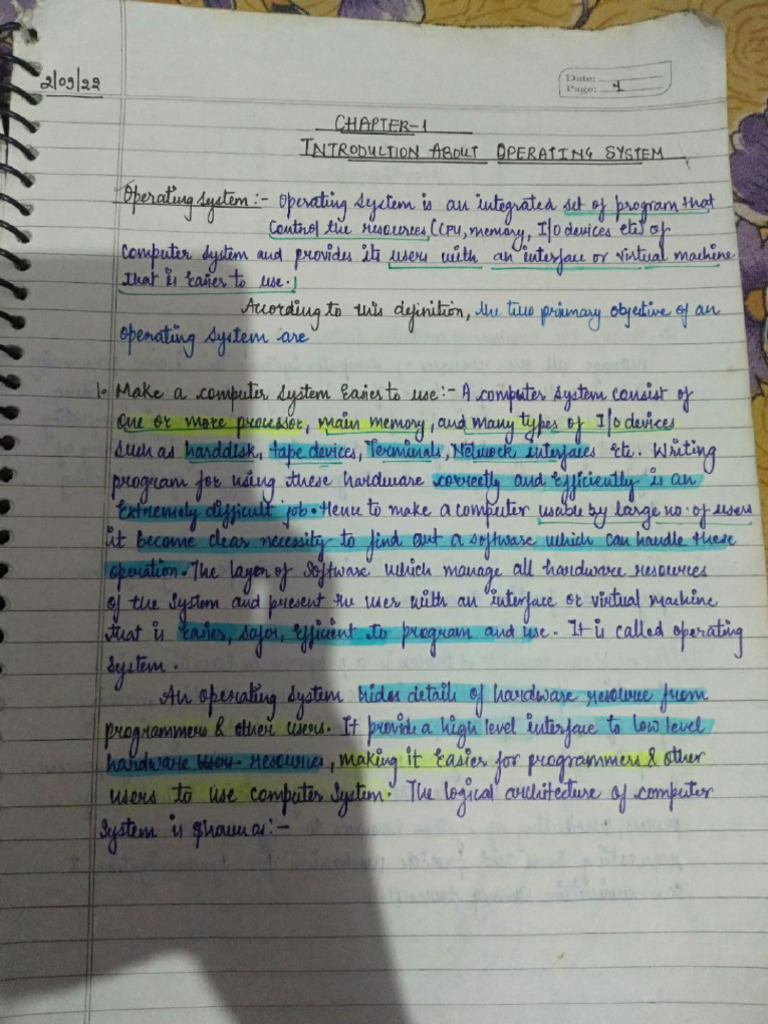 2/09/22
Date:
Page: 1
CHAPTER-1
INTRODUCTION ABOUT OPERATING SYSTEM
Operating System :- Operating System is an integrated set of program that
Control the resources (CPU, memory, I/O devices etc) of
Computer System and provides its users with an interface or virtual machine
that is Easier to use.
According to this definition, the two primary objective of an
operating System are
1. Make a computer System Easier to use :- A computer System consist of
One or more processor, main memory, and many types of I/O devices
Such as harddisk, tape devices, Terminals, Network interfaces etc. Writing
program for using these hardware correctly and Efficiently is an
Extremely difficult job. Hence to make a computer usable by large no. of users
it become clear necessity to find out a software which can handle these
operation. The layer of Software which manage all hardware resources
of the System and present the user with an interface or virtual machine
that is Easier, safer, Efficient to program and use. It is called operating
System.
An operating System hides details of hardware resource from
programmers & other users. It provide a high level interface to low level
hardware resources, making it Easier for programmers & other
users to use computer System. The logical architecture of computer
System is Shown as :-